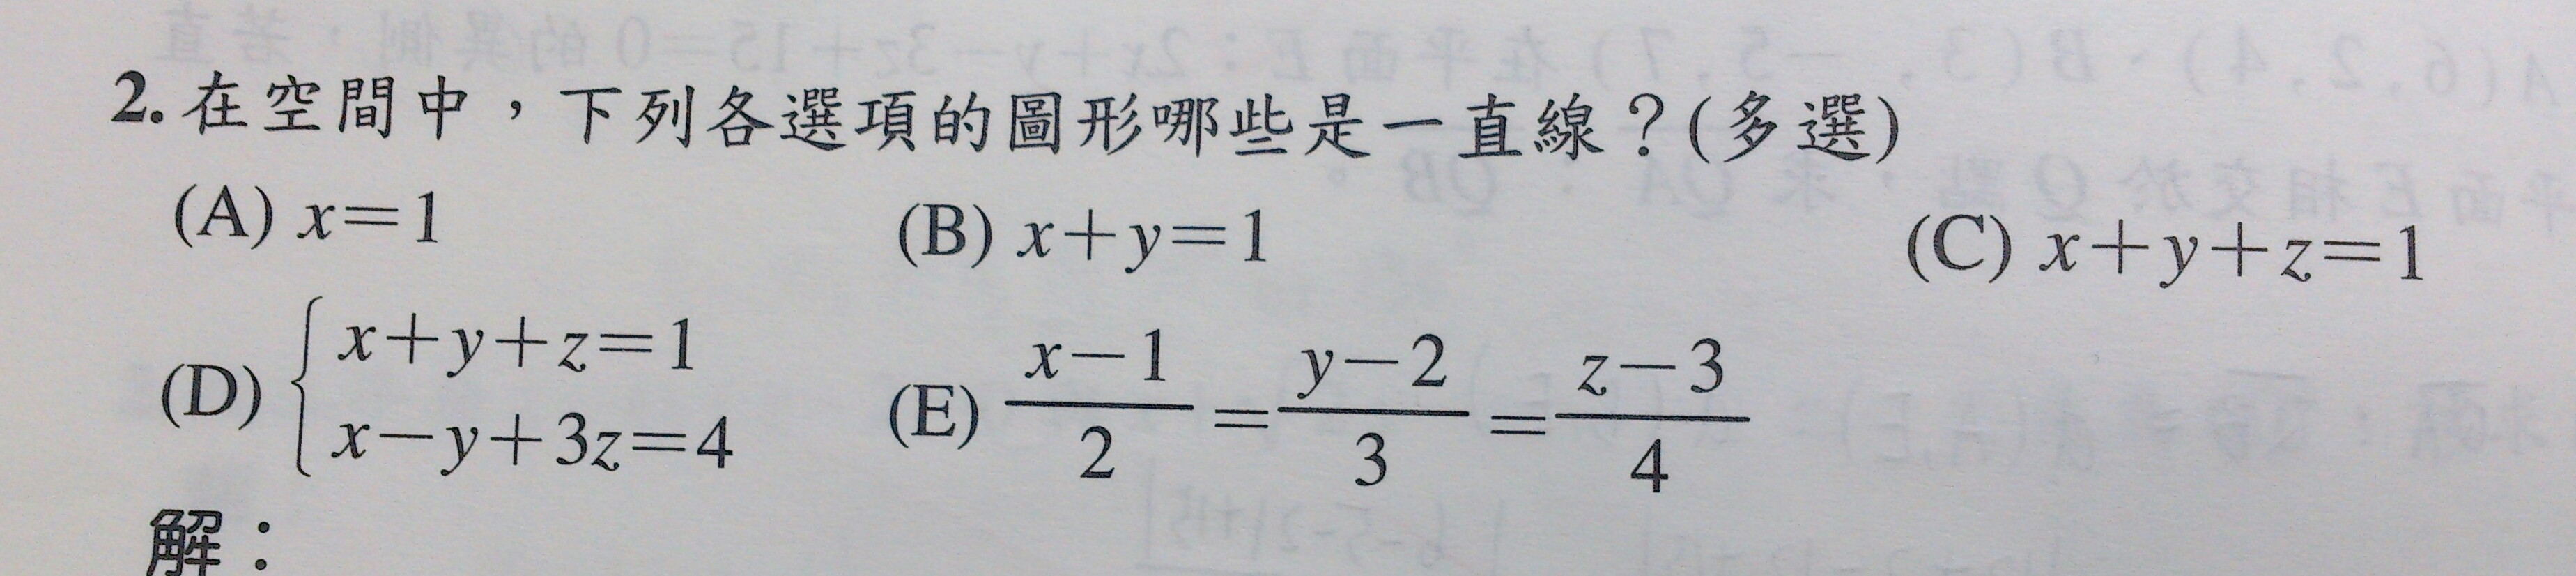 2. 在空間中，下列各選項的圖形哪些是一直線？(多選)
(A) x=1 (B) x+y=1 (C) x+y+z=1
(D) { x+y+z=1
x−y+3z=4
(E) (x−1)/2=(y−2)/3=(z−3)/4
解：